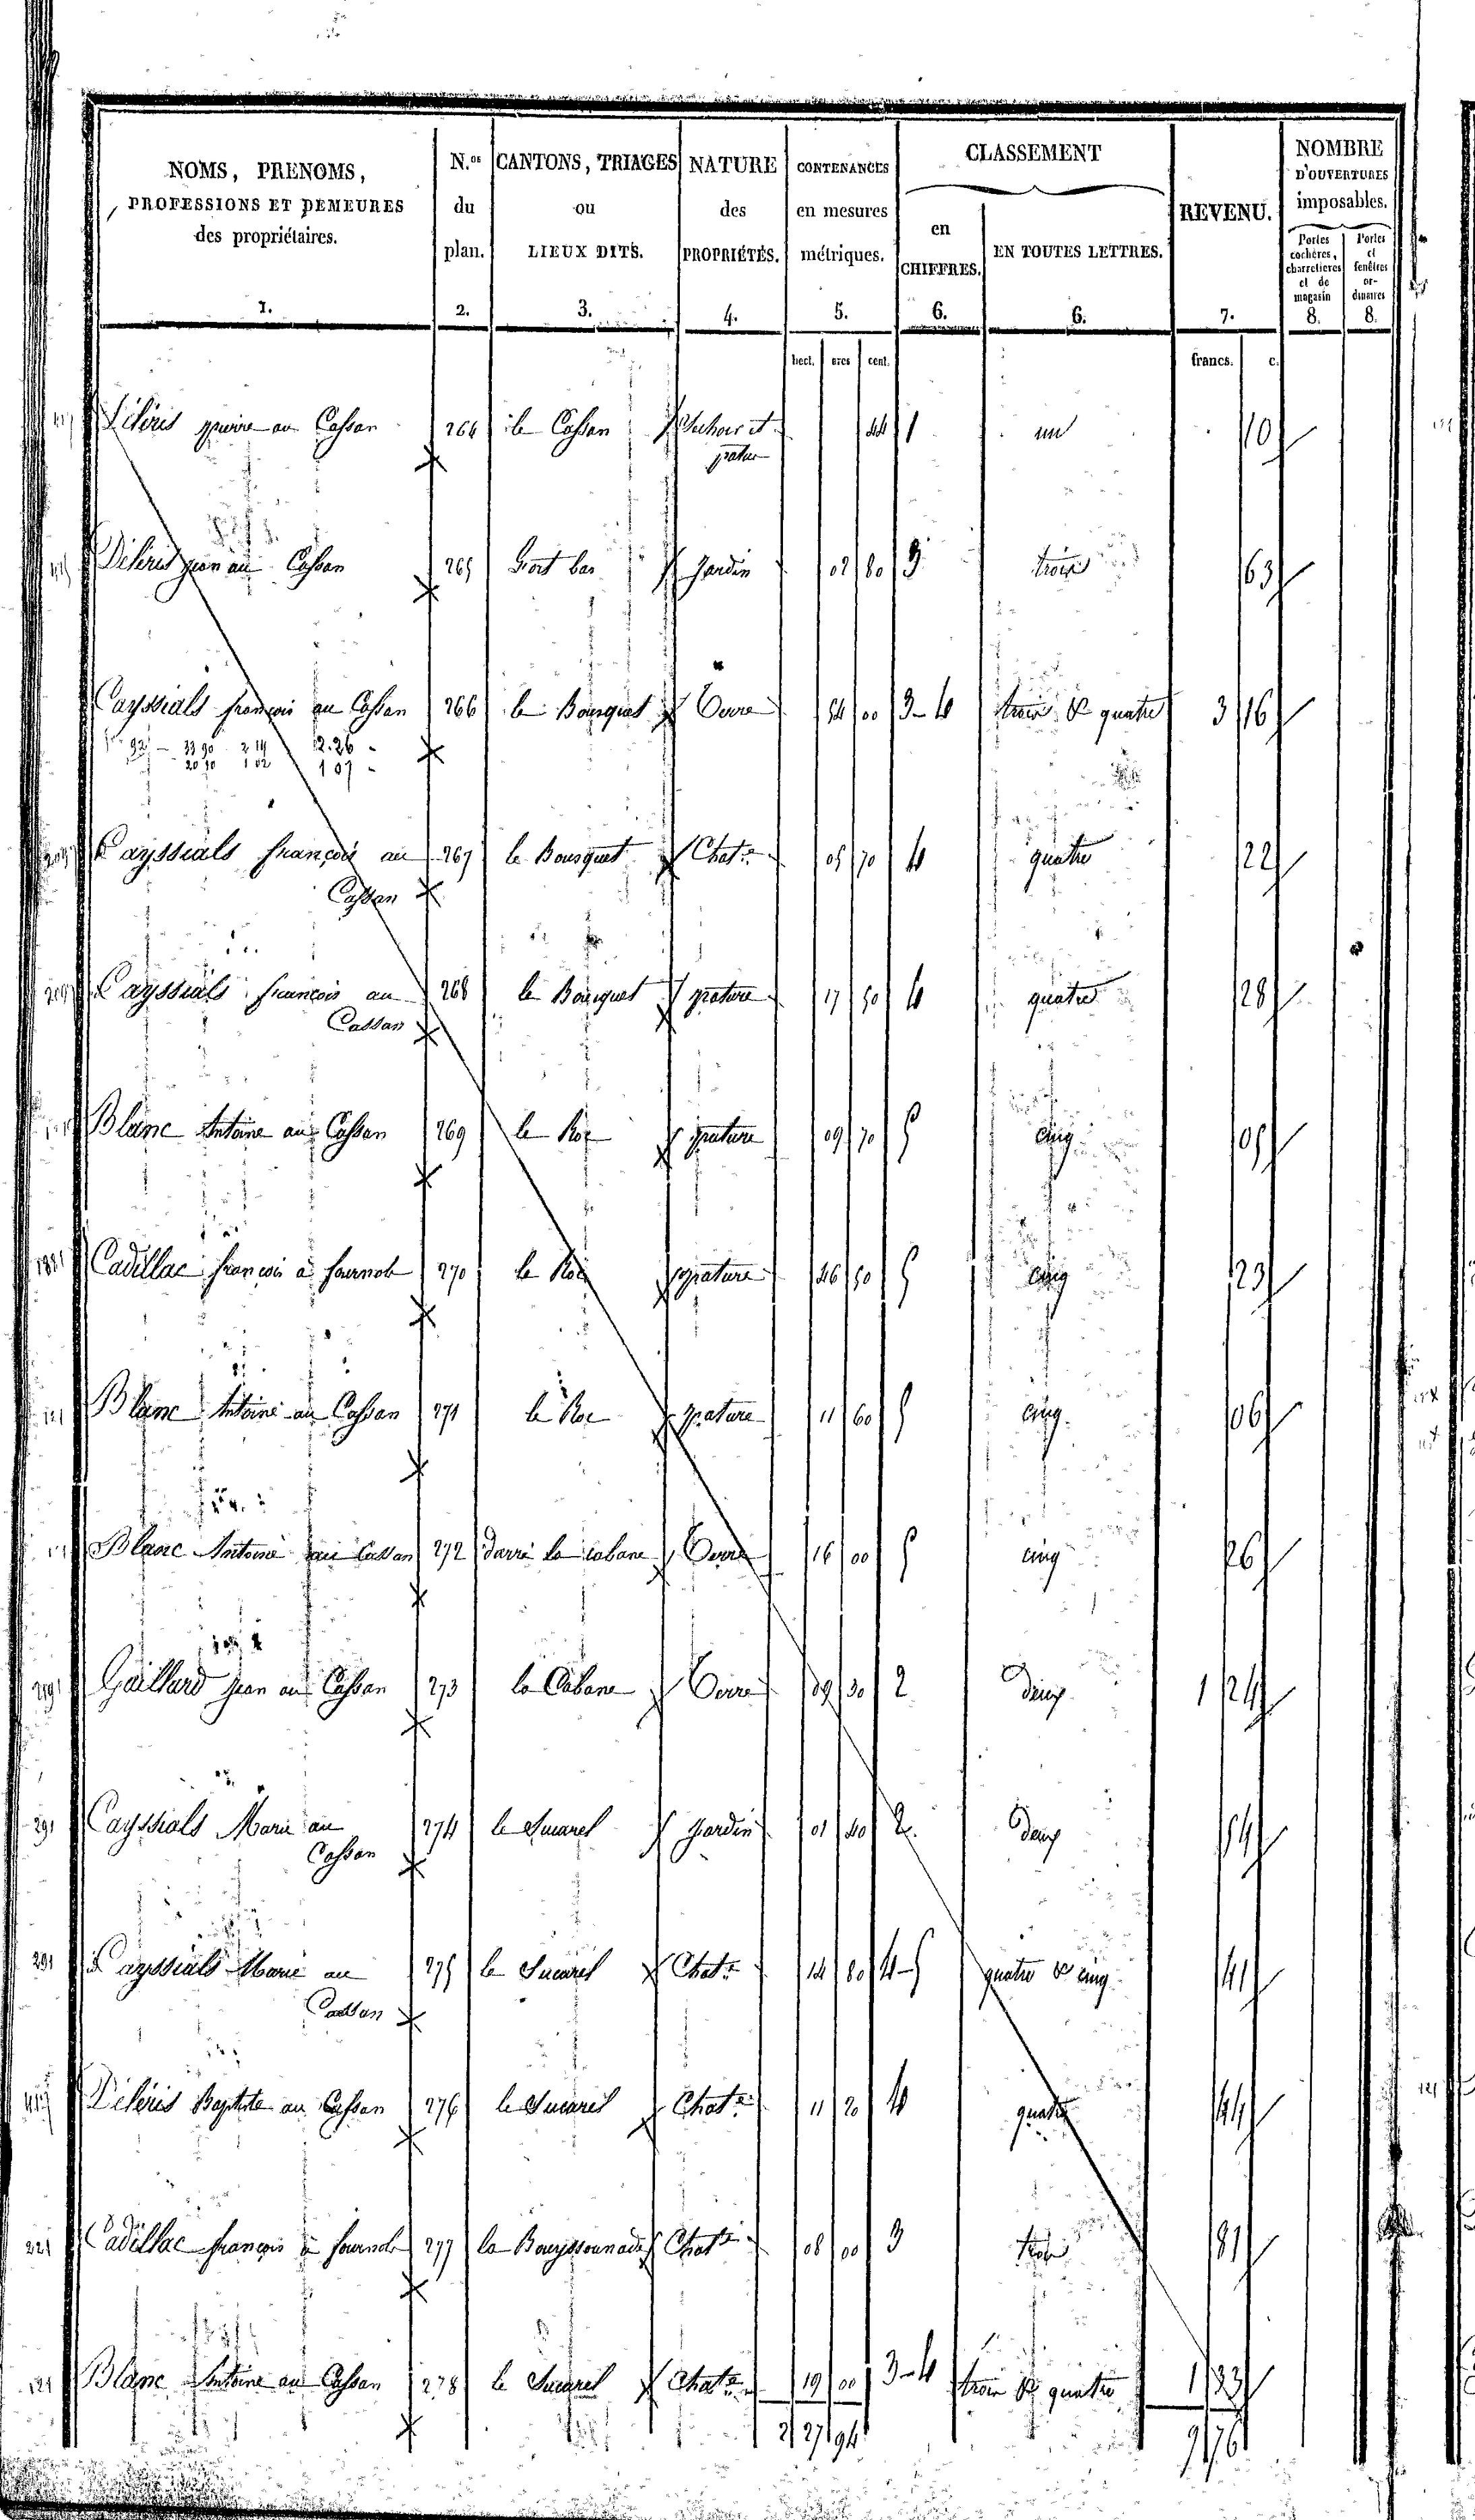 NOMS, PRENOMS, PROFESSIONS ET DEMEURES des propriétaires. 1.
N.os du plan. 2.
CANTONS, TRIAGES ou LIEUX DITS. 3.
NATURE des PROPRIÉTÉS. 4.
CONTENANCES en mesures métriques. 5.
CLASSEMENT
en CHIFFRES. 6.
EN TOUTES LETTRES. 6.
REVENU. 7.
NOMBRE D'OUVERTURES imposables.
Portes cochères, charretières et de magasin 8.
Portes et fenêtres ordinaires 8.
hect. ares cent. francs. c.
Déléris pierre au Cassan 264 le Cassan 44 1 un 10
pature
Déléris jean au Cassan 265 hort bas Jardin 02 80 3 trois 63
Cayssials françois au Cassan 266 le Bousquet Terre 54 00 3-4 trois & quatre 3 16
Cayssials françois au 267 le Bousquet Chat.re 05 70 4 quatre 22
Cassan
Cayssials françois au 268 le Bousquet pature 17 50 4 quatre 28
Cassan
Blanc Antoine au Cassan 269 le Roc pature 09 70 5 cinq 05
Cadillac françois à fournols 270 le Roc pature 46 50 5 cinq 23
Blanc Antoine au Cassan 271 le Roc pature 11 60 5 cinq 06
Blanc Antoine au Cassan 272 darré la cabane Terre 16 00 5 cinq 26
219 Gaillard jean au Cassan 273 la Cabane Terre 09 30 2 deux 1 24
291 Cayssials Marie au 274 le Sucarel Jardin 01 40 2 deux 54
Cassan
291 Cayssials Marie au 275 le Sucarel Chat.re 14 80 4-5 quatre & cinq 41
Cassan
Déléris Baptiste au Cassan 276 le Sucarel Chat.re 11 20 4 quatre 44
221 Cadillac françois à fournols 277 la Bouyssounade Chat.re 08 00 3 trois 81
121 Blanc Antoine au Cassan 278 le Sucarel Chat.re 19 00 3-4 trois & quatre 1 33
2 27 94 9 76